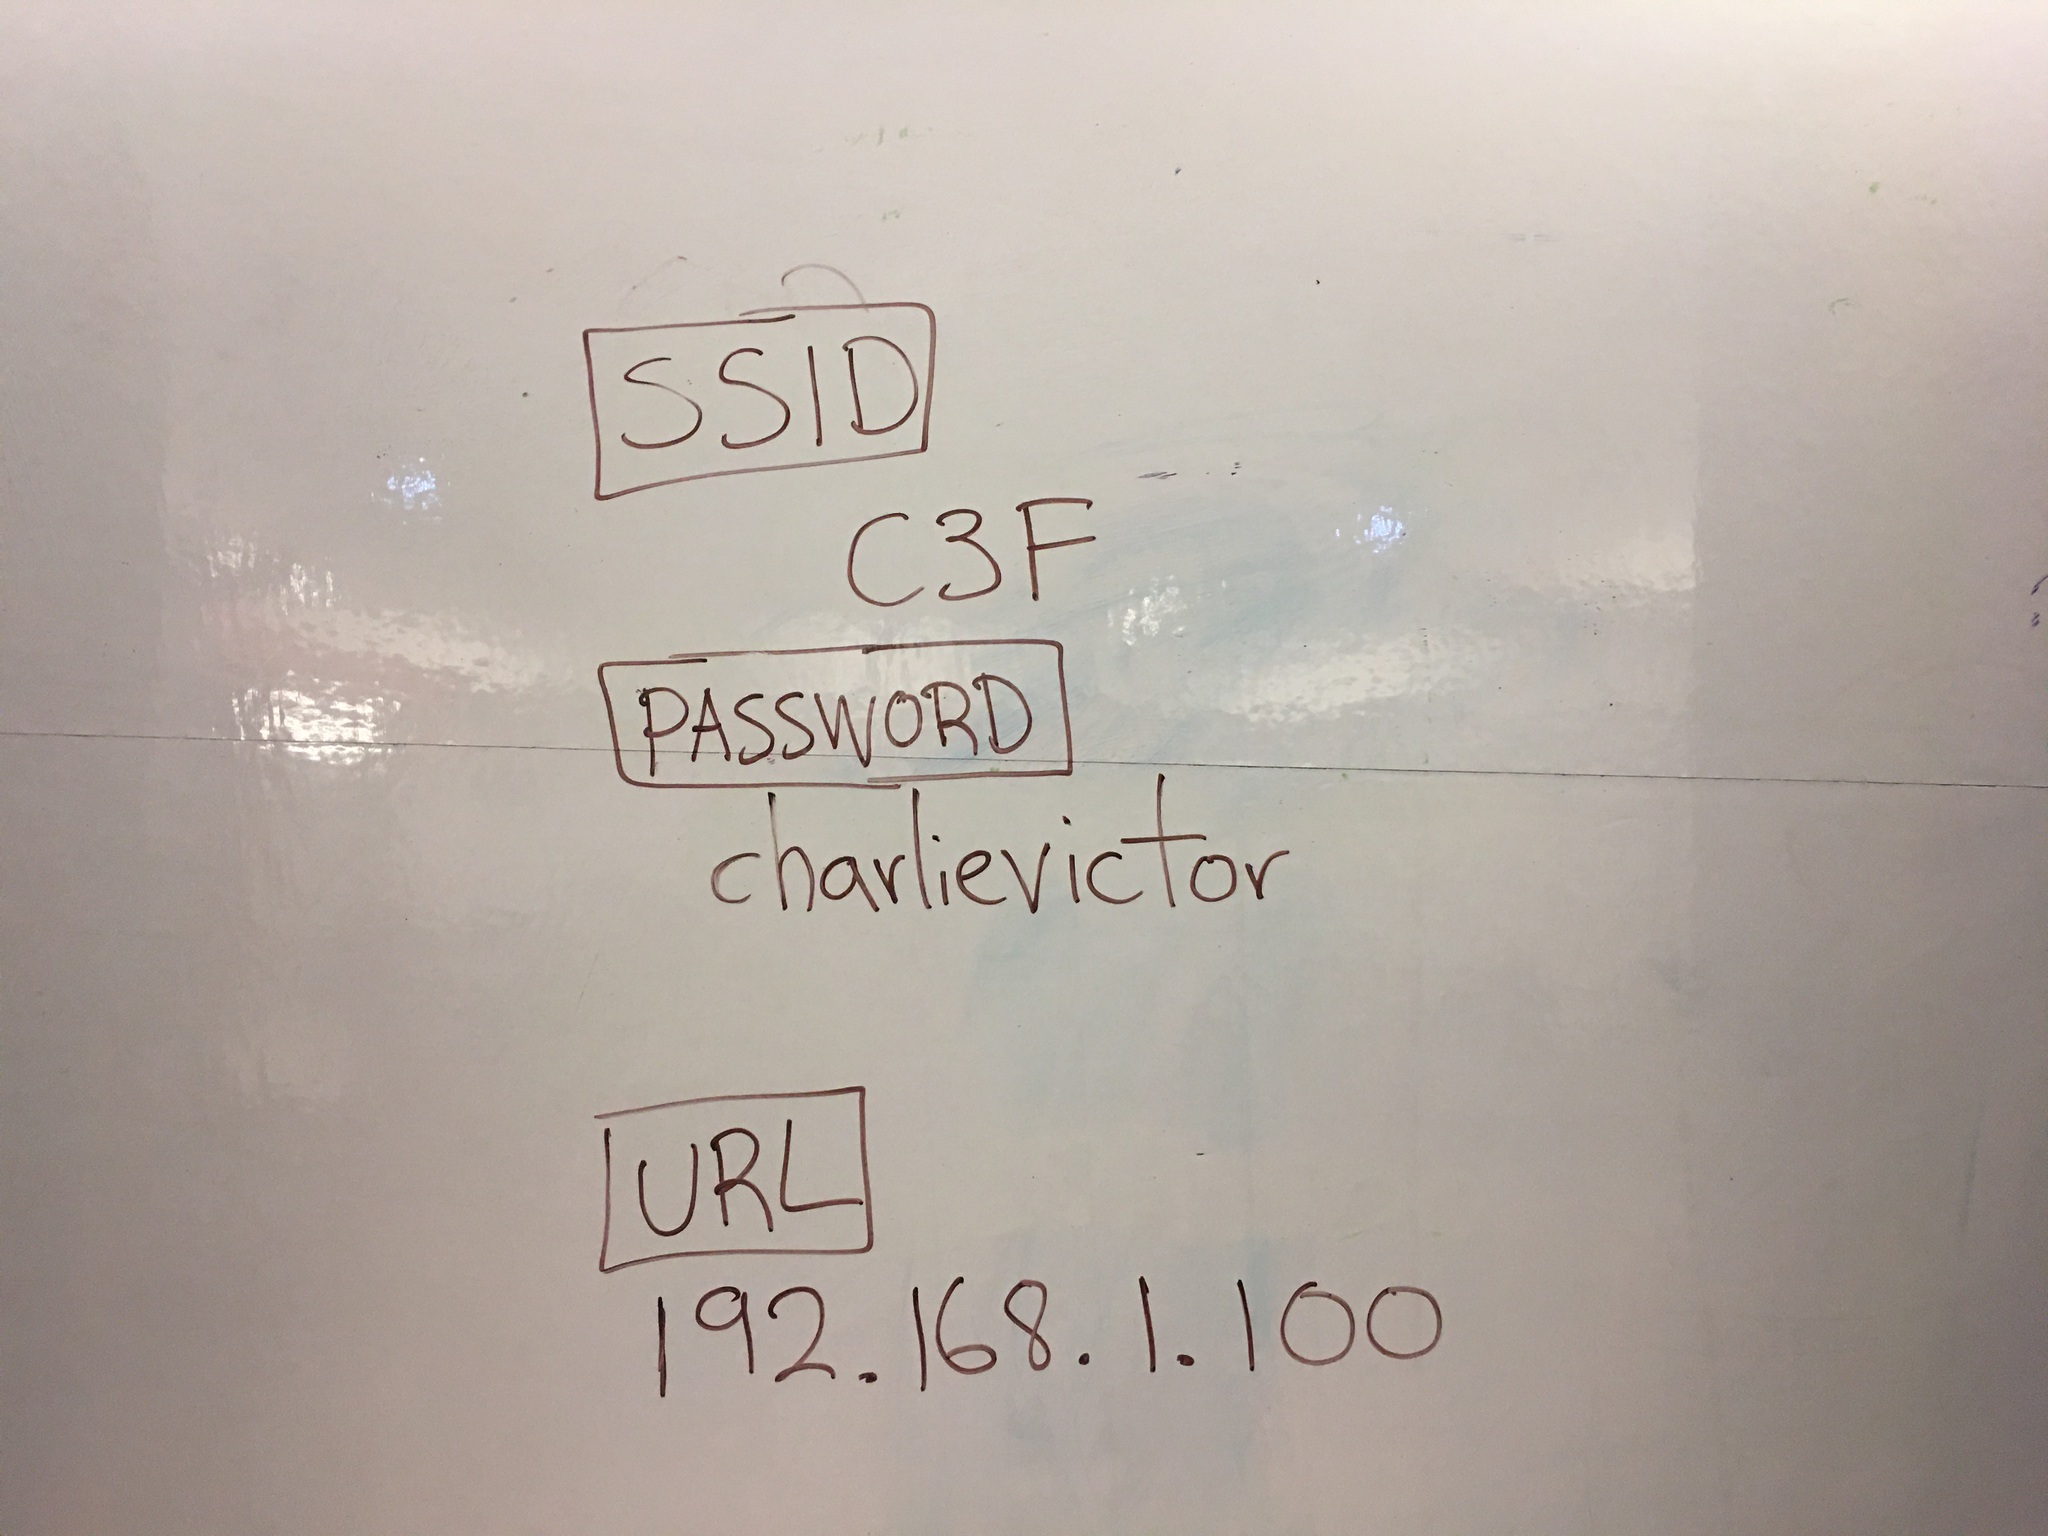 SSID
C3F
PASSWORD
charlievictor
URL
192.168.1.100